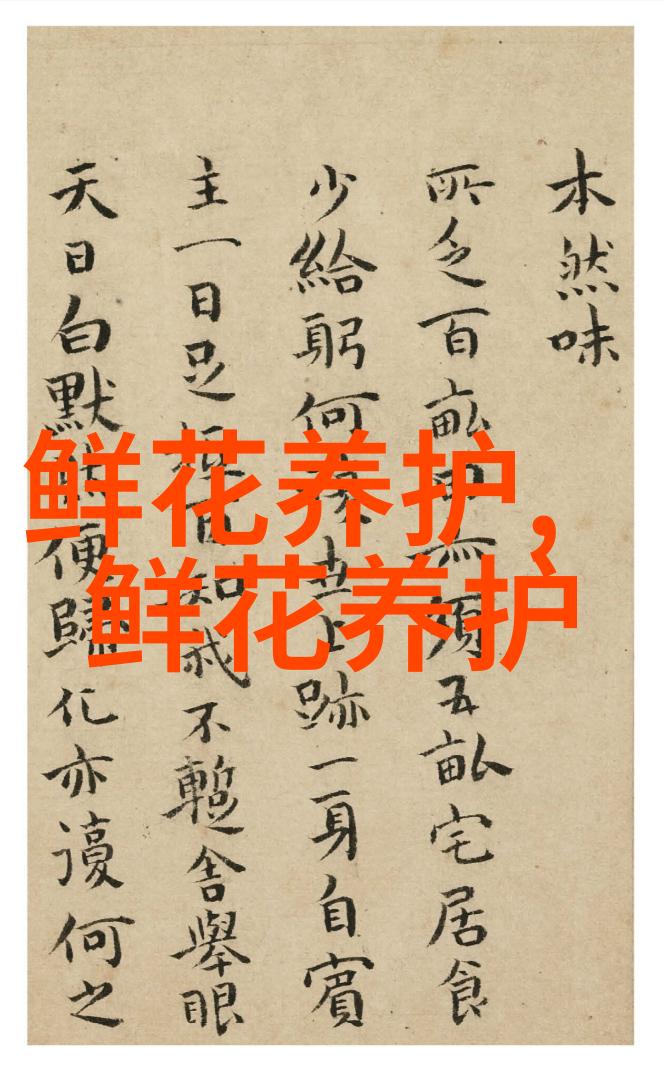 本然味
所乏百畝須五畝宅居食
少給躬何上跡一身自賓
主一日百知戒不暫舍舉眼
天日白默便歸化亦謾何之
鲜花养护,
鲜花养护